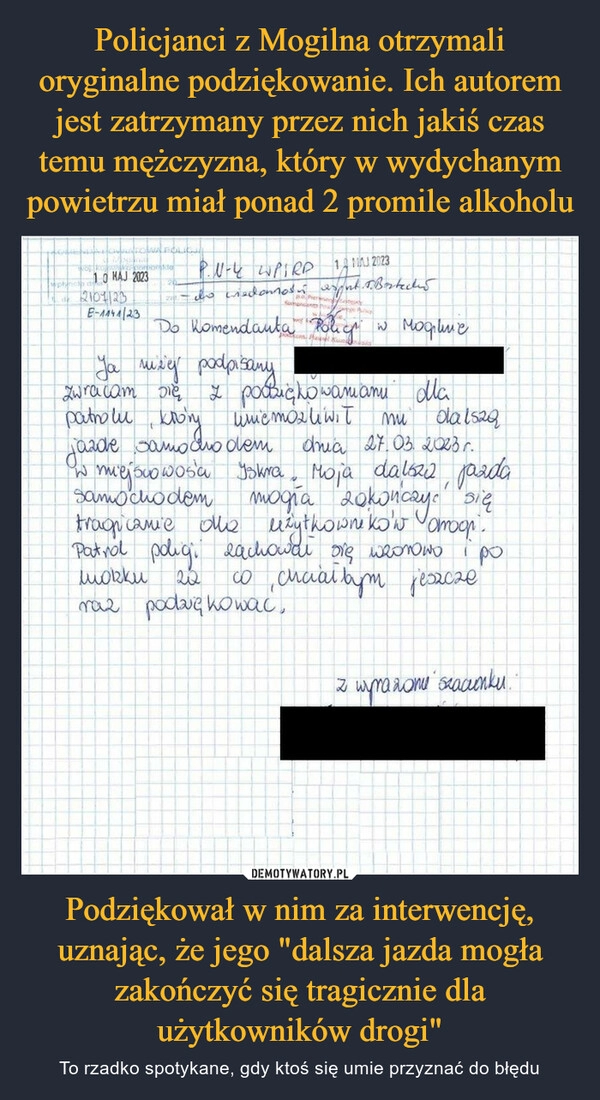 Policjanci z Mogilna otrzymali
oryginalne podziękowanie. Ich autorem
jest zatrzymany przez nich jakiś czas
temu mężczyzna, który w wydychanym
powietrzu miał ponad 2 promile alkoholu
10 MAJ 2023
P.N-k WPiRD
MAJ 2023
2101/23
- do wiadomości
E-1141/23
Do Komendanta Policji w Mogilnie
Ja niżej podpisany
zwracam się z podziękowaniami dla
patrolu, który uniemożliwił mi dalszą
jazdę samochodem dnia 27.03.2023r.
w miejscowości Iskra. Moja dalsza jazda
samochodem mogła zakończyć się
tragicznie dla użytkowników drogi.
Patrol policji zachował się wzorowo i po
ludzku za co chciałbym jeszcze
raz podziękować,
z wyrazami szacunku.
DEMOTYWATORY.PL
Podziękował w nim za interwencję,
uznając, że jego "dalsza jazda mogła
zakończyć się tragicznie dla
użytkowników drogi"
To rzadko spotykane, gdy ktoś się umie przyznać do błędu